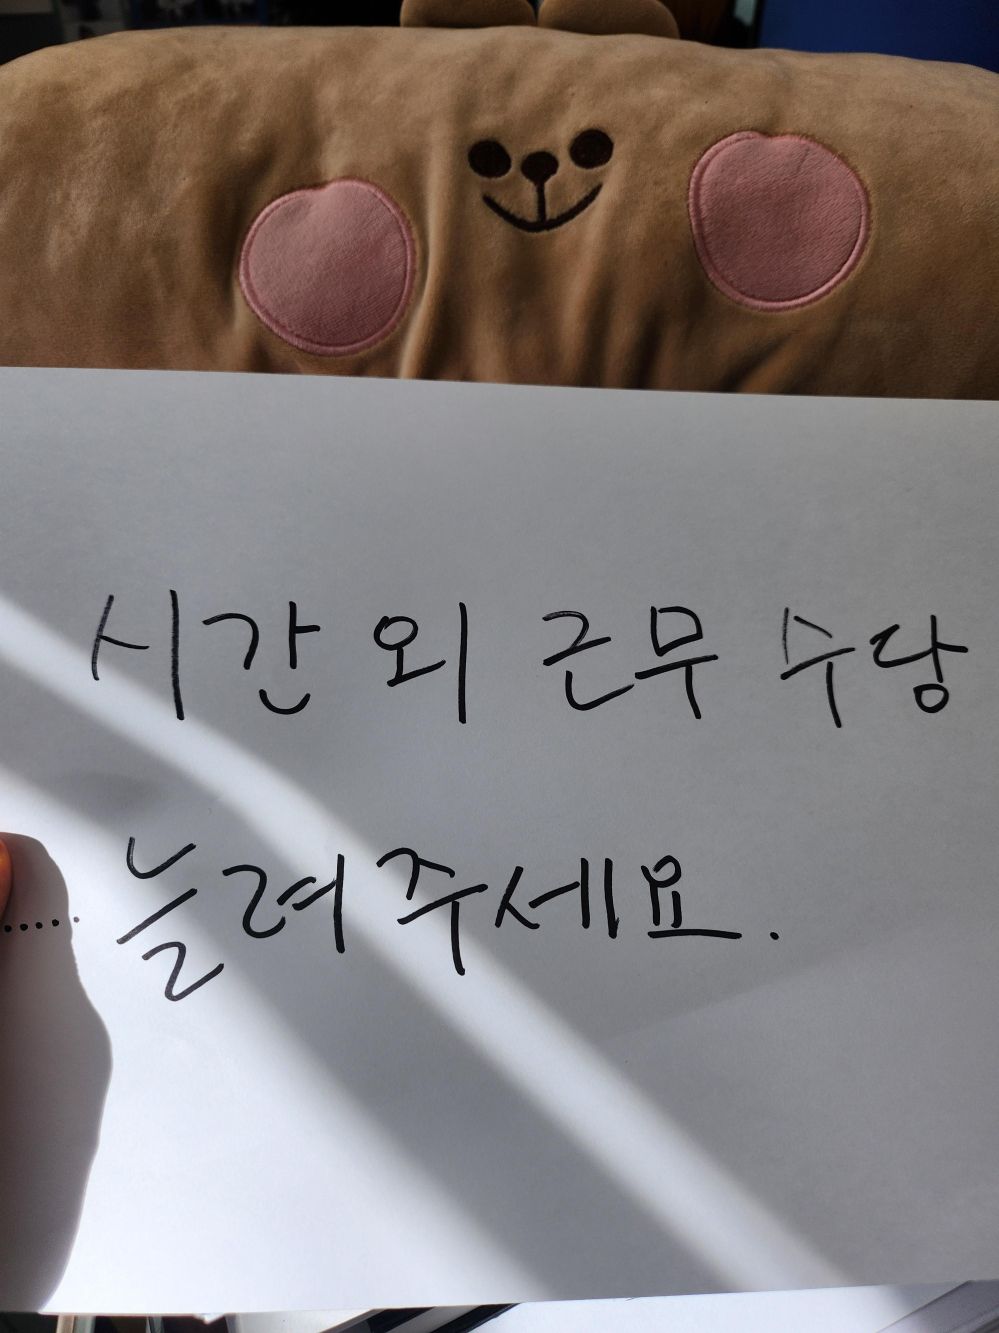 시간 외 근무 수당
..... 늘려주세요.